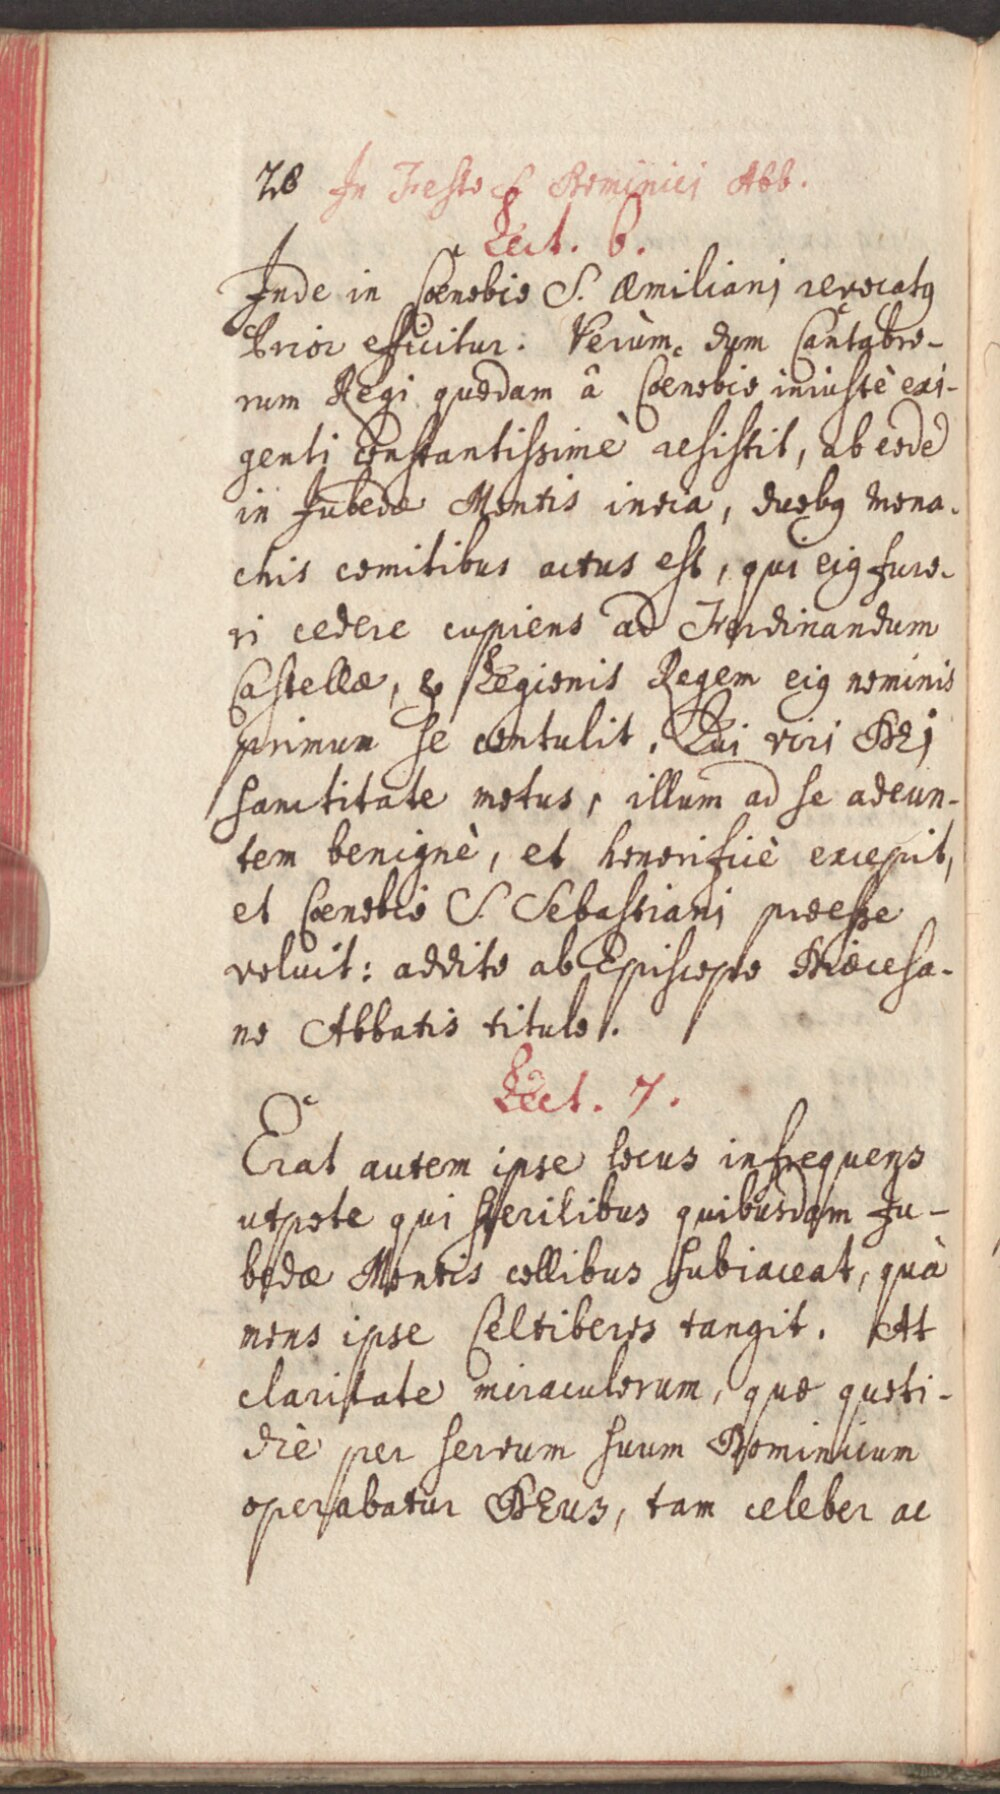 28 In Festo S. Dominici Abb.
Lect. 6.
Inde in Cœnobio S. Æmiliani revocatꝰ
Prior efficitur. Verùm dum Cantabro-
rum Regi quædam â Cœnobio iniustè exi-
genti constantissimè resistit, ab eodē
in Jubedæ Montis invia, duobꝰ mona-
chis comitibus actus est, qui eiꝰ furo-
ri cedere cupiens ad Ferdinandum
Castellæ, & Legionis Regem eiꝰ nominis
primum se contulit. Qui viri DEi
sanctitate motus, illum ad se adeun-
tem benignè, et honorificè excepit,
et Cœnobio S. Sebastiani præesse
voluit: addito ab Episcopo Diœcesa-
no Abbatis titulo.
Lect. 7.
Erat autem ipse locus infrequens
utpote qui sterilibus quibusdam Ju-
bedæ Montis collibus subiaceat, quà
mons ipse Celtiberos tangit. At
claritate miraculorum, quæ quoti-
diè per servum suum Dominicum
operabatur DEus, tam celeber ac